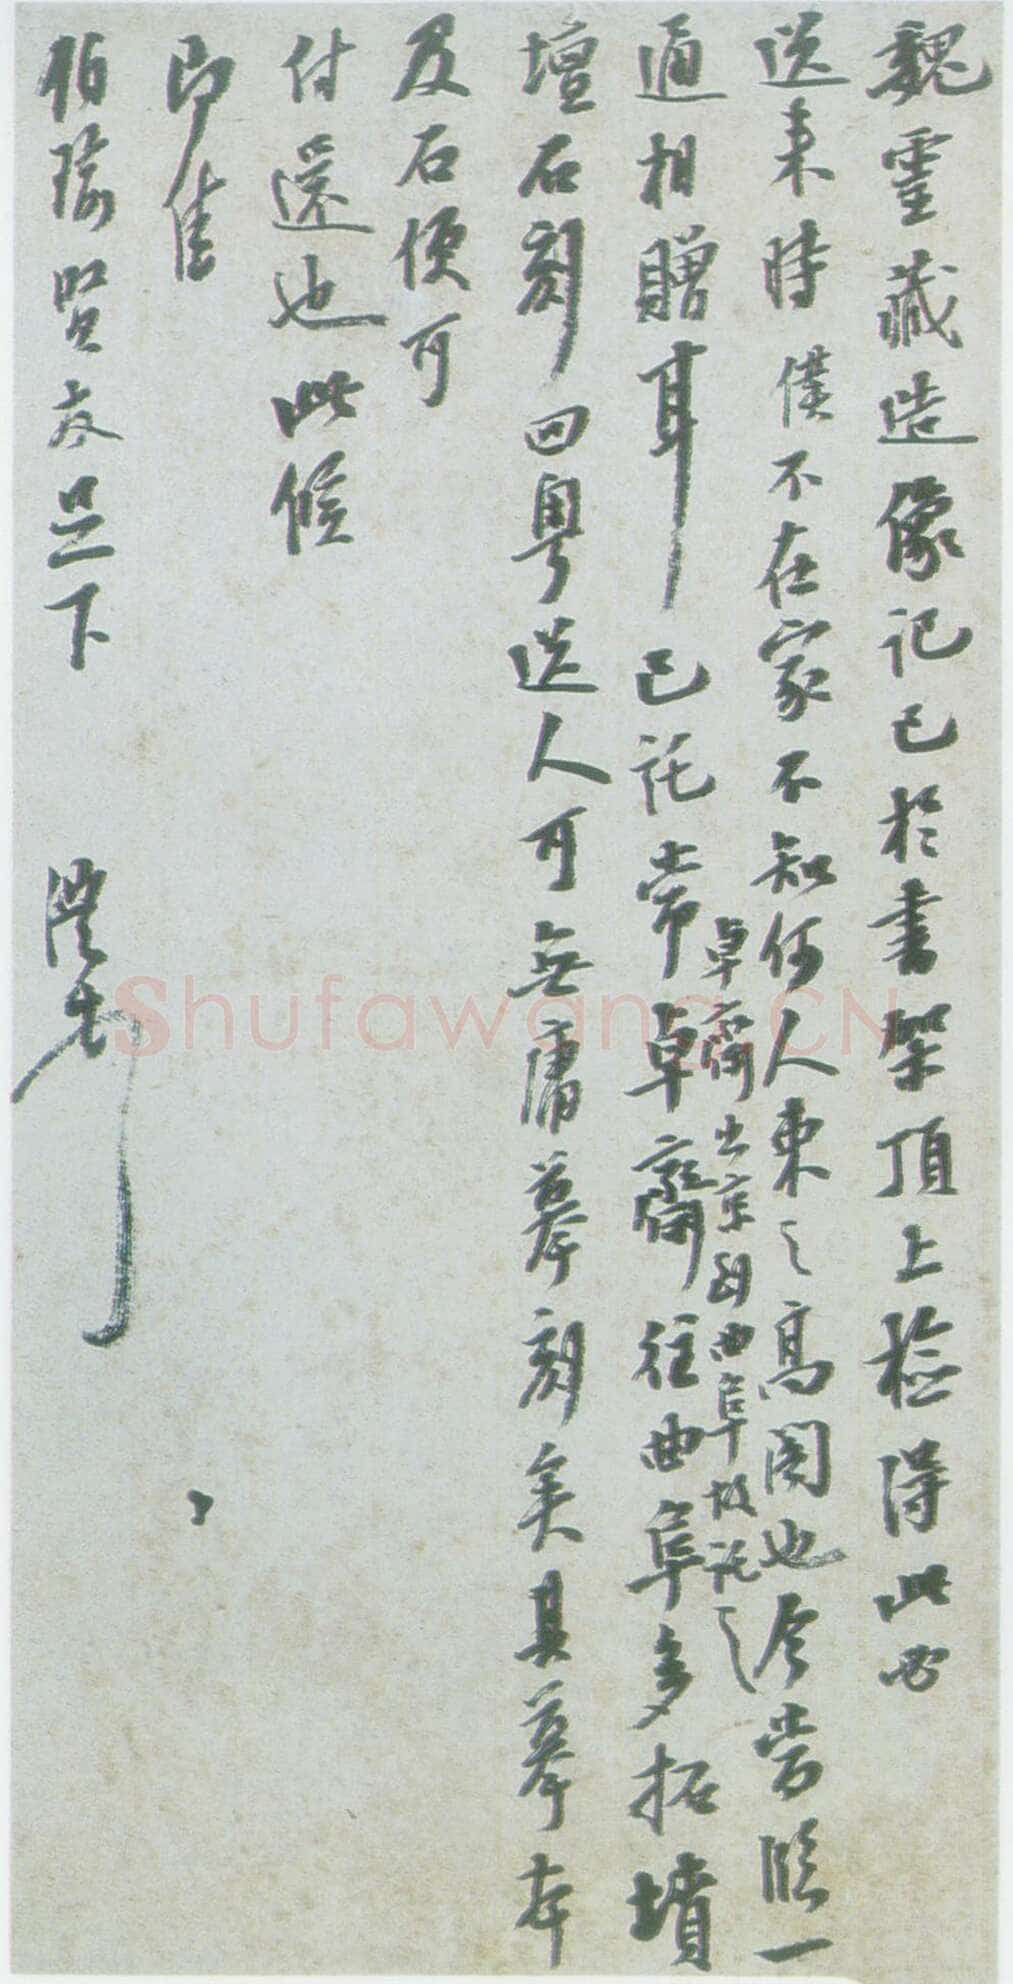 魏靈藏造像记已於書架頂上檢得此必
送来時僕不在家不知何人束之高阁也今嘗臨一
通相贈耳已託常卓齋往曲阜多拓墳
卓齋出京到曲阜故託之
壇石刻回粤送人可無庸摹刻矣其摹本
及石便可
付還也此候
即佳
伯瑜賢友足下
澧
Shufawang.CN